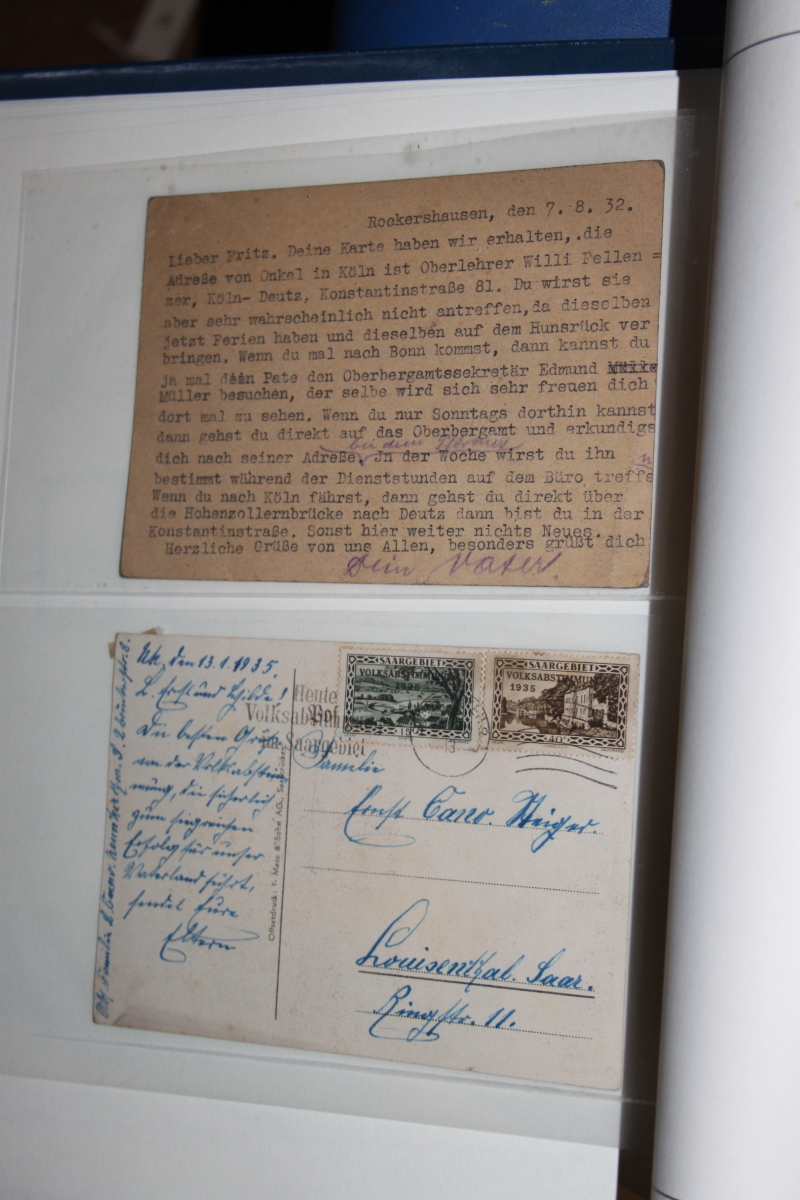 Rockershausen, den 7. 8. 32.
Lieber Fritz. Deine Karte haben wir erhalten,.die
Adreße von Onkel in Köln ist Oberlehrer Willi Fellen =
zer, Köln- Deutz, Konstantinstraße 81. Du wirst sie
aber sehr wahrscheinlich nicht antreffen,da dieselben
jetzt Ferien haben und dieselben auf dem Hunsrück ver
bringen. Wenn du mal nach Bonn kommst, dann kannst du
ja mal dein Pate den Oberbergamtssekretär Edmund
Müller besuchen, der selbe wird sich sehr freuen dich
dort mal zu sehen. Wenn du nur Sonntags dorthin kannst
dann gehst du direkt auf das Oberbergamt und erkundigs
bei dem
dich nach seiner Adreße. Jn der Woche wirst du ihn
bestimmt während der Dienststunden auf dem Büro treffe
Wenn du nach Köln fährst, dann gehst du direkt über
die Hohenzollernbrücke nach Deutz dann bist du in der
Konstantinstraße. Sonst hier weiter nichts Neues.
Herzliche Grüße von uns Allen, besonders grüßt dich
Dein Vater.
den 13.1.1935.
L. Ernst und Hilde!
Die besten Grüße
von der Volksabstim
mung, die sicherlich
zum siegreichen
Erfolg für unser
Vaterland führt,
sendet Eure
Eltern
Offsetdruck: F. Maiz & Sohn AG., Saarbrücken
Heute
Volksabstimmung
im Saargebiet
SAARGEBIET
VOLKSABSTIMMUNG
1935
15
SAARGEBIET
VOLKSABSTIMMUNG
1935
40
Familie
Ernst Cano. Steiger.
Louisenthal. Saar.
Ringstr. 11.